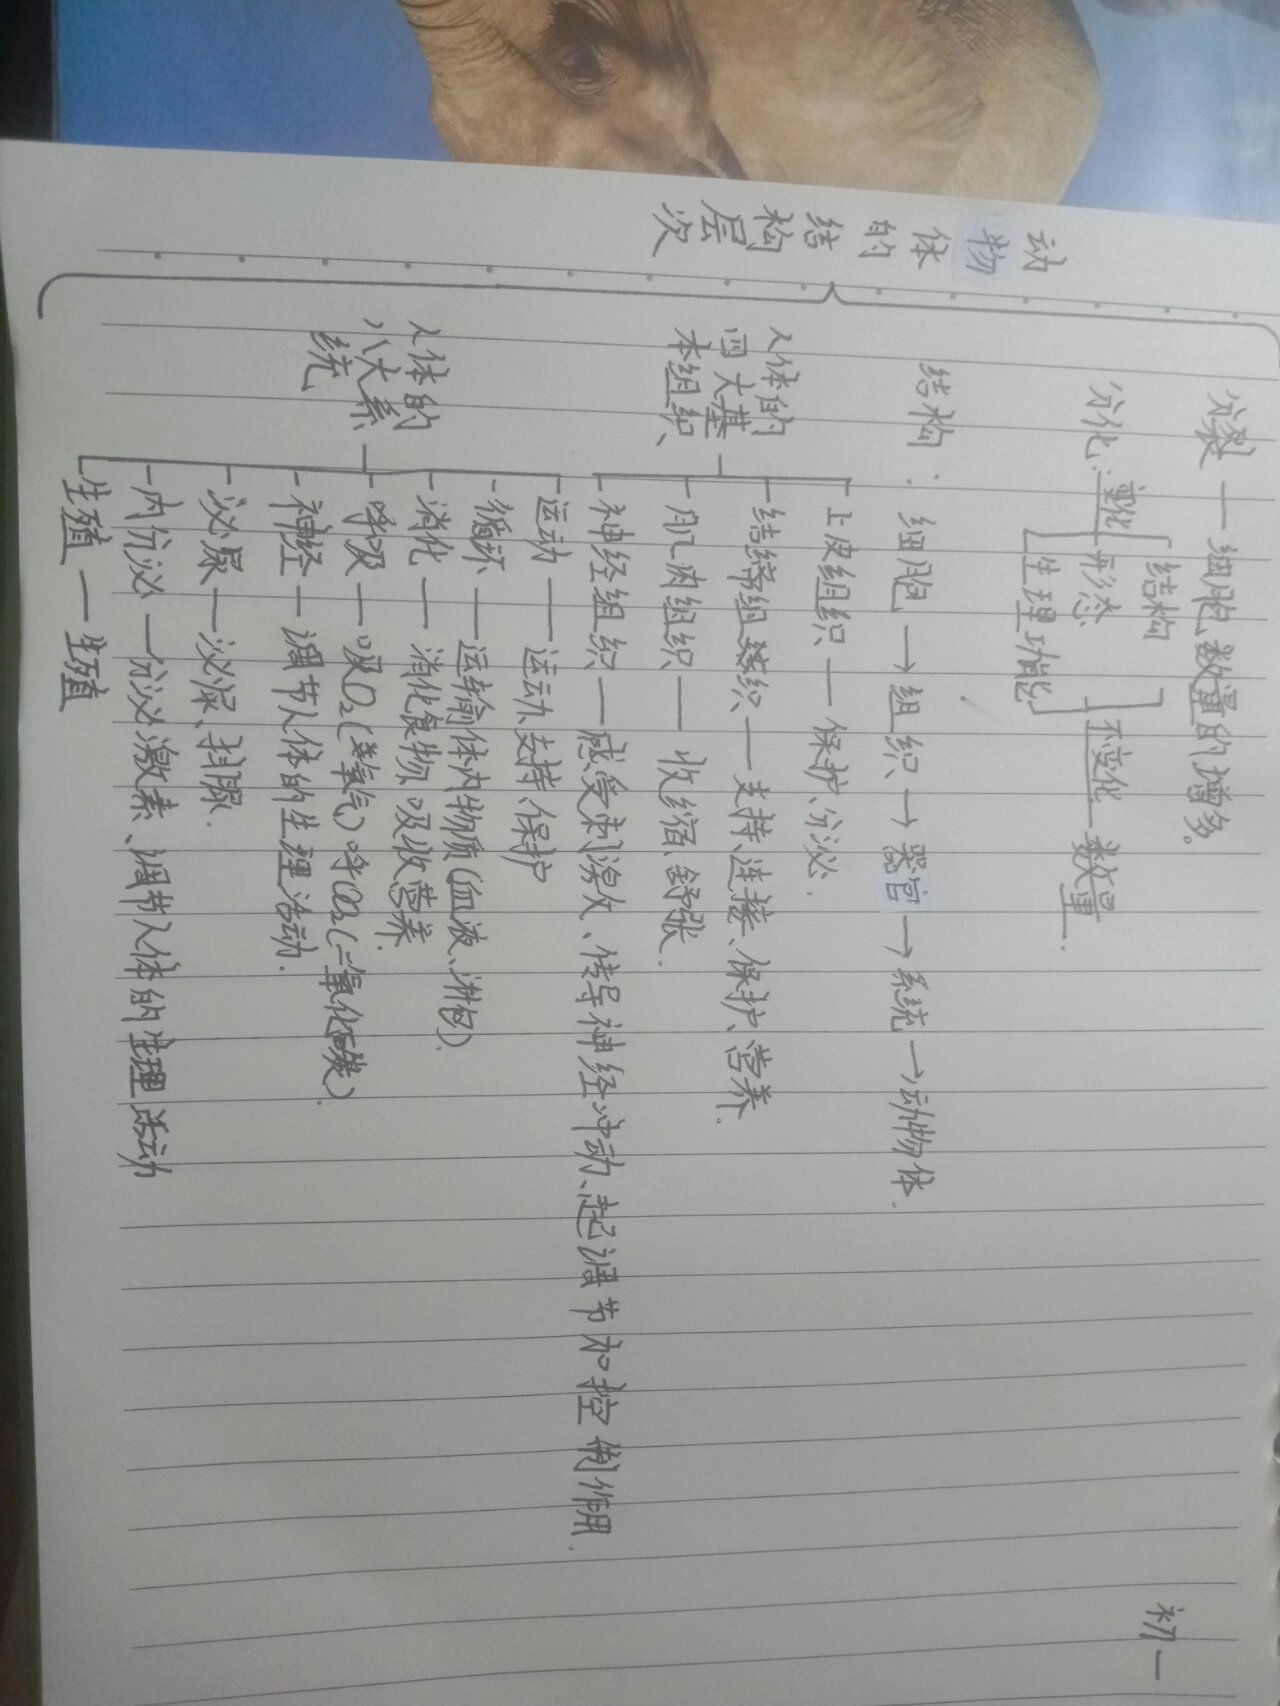 初一
动物体的结构层次
分裂—细胞数量的增多。
分化：变化
结构
形态
生理功能
不变化—数量.
结构：细胞→组织→器官→系统→动物体.
人体的四大基本组织
上皮组织—保护、分泌.
结缔组织—支持、连接、保护、营养.
肌肉组织—收缩、舒张.
神经组织—感受刺激、传导神经冲动、起调节和控制作用.
人体的八大系统
运动—运动、支持、保护
循环—运输体内物质(血液、淋包).
消化—消化食物、吸收营养.
呼吸—吸O₂(氧气)呼CO₂(二氧化碳).
神经—调节人体的生理活动.
泌尿—泌尿、排尿.
内分泌—分泌激素、调节人体的生理活动
生殖—生殖